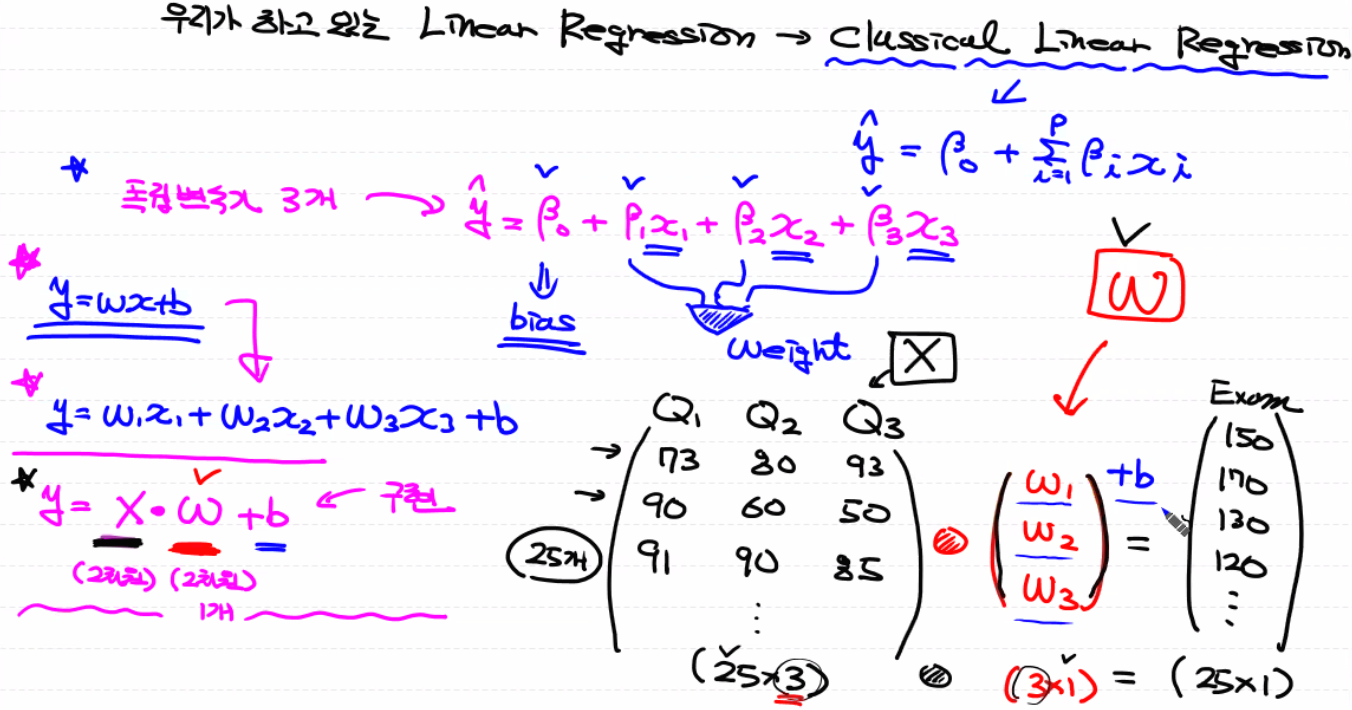 우리가 하고 있는 Linear Regression → Classical Linear Regression
ŷ = β₀ + Σᵢ₌₁ᵖ βᵢxᵢ
독립변수가 3개 → ŷ = β₀ + β₁x₁ + β₂x₂ + β₃x₃
bias
weight
W
y=wx+b
y=w₁x₁+w₂x₂+w₃x₃+b
y= X•W+b ← 구현
(2차원) (2차원)
1개
X
Q₁ Q₂ Q₃
Exam
73 80 93
90 60 50
91 90 85
⋮
25개
w₁
w₂
w₃
+b
=
150
170
130
120
⋮
(25×3) • (3×1) = (25×1)